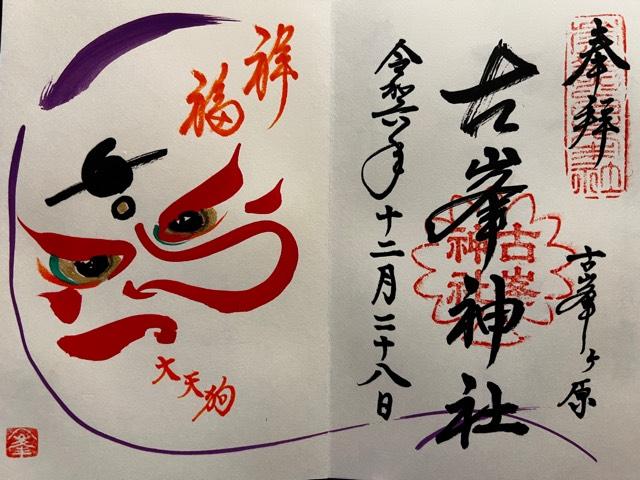 奉拝
古峯ヶ原
古峯神社
古峯神社
令和六年十二月二十八日
祥福
大天狗